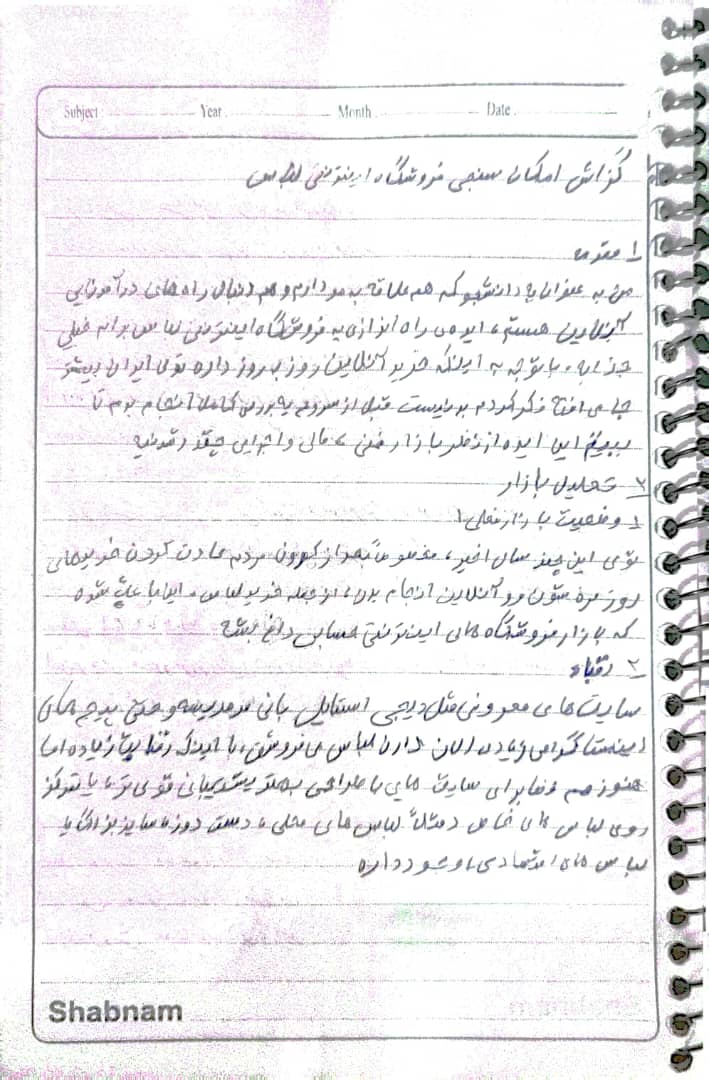 Subject: Year. Month. Date.
گزارش امکان سنجی فروشگاه اینترنتی لباس
۱ مقدمه
من به عنوان یه دانشجو که هم علاقه به مد دارم و هم دنبال راه های درآمدزایی
آنلاین هستم، ایده ی راه اندازی یه فروشگاه اینترنتی لباس برام خیلی
جذابه. با توجه به اینکه خرید آنلاین روز به روز داره توی ایران بیشتر
جا می افته فکر کردم بد نیست قبل از شروع یه بررسی کامل انجام بدم تا
ببینم این ایده از نظر بازار فنی، مالی و اجرایی چقدر شدنیه
۲ تحلیل بازار
۱ وضعیت بازار فعلی
توی این چند سال اخیر، مخصوصاً بعد از کرونا مردم عادت کردن خریدهای
روزمره شون رو آنلاین انجام بدن، از جمله خرید لباس. اینا باعث شده
که بازار فروشگاه های اینترنتی حسابی داغ بشه
۲ رقبا
سایت های معروفی مثل دیجی استایل بانی مد مدیسه و حتی پیج های
اینستاگرامی زیادی الان دارن لباس می فروشن. با اینکه رقابت زیاده اما
هنوز هم فضا برای سایت هایی با طراحی بهتر پشتیبانی قوی تر، یا تمرکز
روی لباس های خاص مثلاً لباس های محلی، دست دوز، سایز بزرگ یا
لباس های اقتصادی، وجود داره
Shabnam